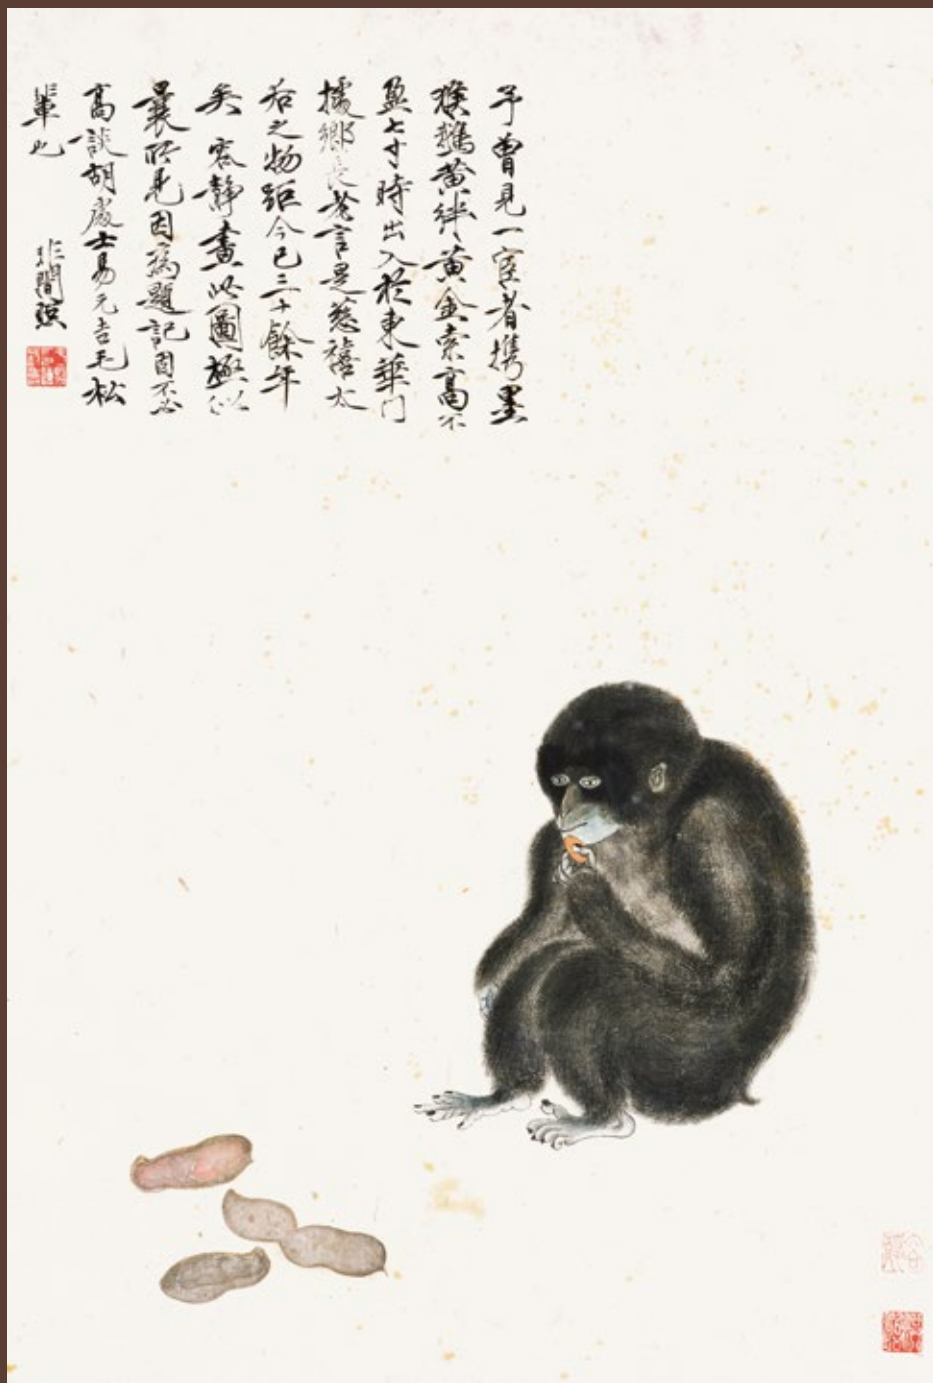 予曾見一宦者携墨
猴黄絆黄金索高不
盈七寸時出入於東華門
據鄉長老言是慈禧太
后之物距今已三十餘年
矣容靜畫此圖極似
曩所見因為題記固不必
高談胡處士易元吉毛松
輩也 非闇